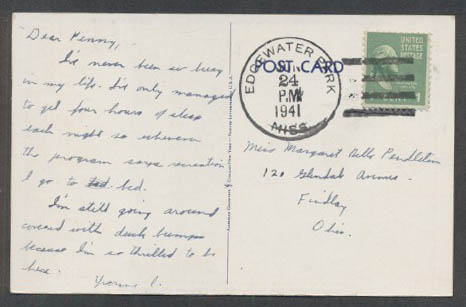 Dear Penny,
I've never been so busy
in my life. I've only managed
to get four hours of sleep
each night so whenever
the program says recreation
I go to bed.
I'm still going around
covered with duck bumps
because I'm so thrilled to be
here.
Yvonne
POST CARD
EDGEWATER PARK
24
P.M.
1941
MISS.
UNITED
STATES
POSTAGE
1
Miss Margaret Pendleton
120 Glendale Avenue
Findlay
Ohio.